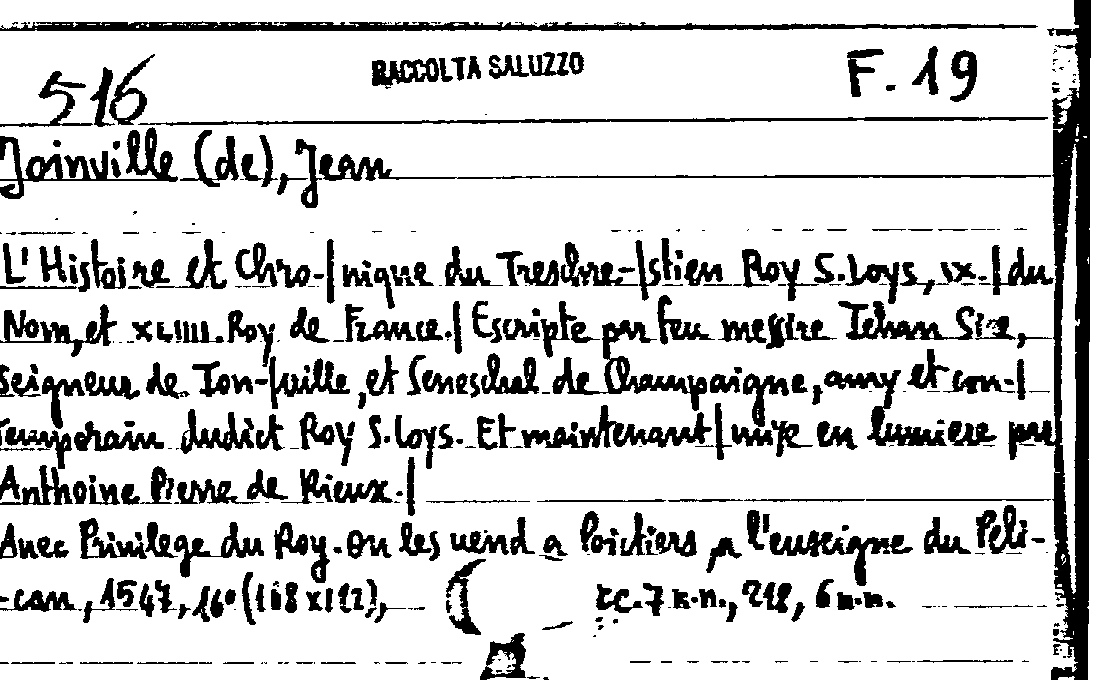 516 RACCOLTA SALUZZO F. 19
Joinville (de), Jean
L'Histoire et Chro-|nique du Treschre-|stien Roy S. Loys, ix.| du
Nom, et XLIIII. Roy de France.| Escripte par feu messire Iehan Sire,
seigneur de Ion-|uille, et Seneschal de Champaigne, amy et con-|
temporain dudict Roy S. Loys. Et maintenant| mise en lumiere par
Anthoine Pierre de Rieux.|
Auec Priuilege du Roy. On les uend a Poictiers, a l'enseigne du Peli-
-can, 1547, 16° cc. 7 n.n., 218, 6 n.n.